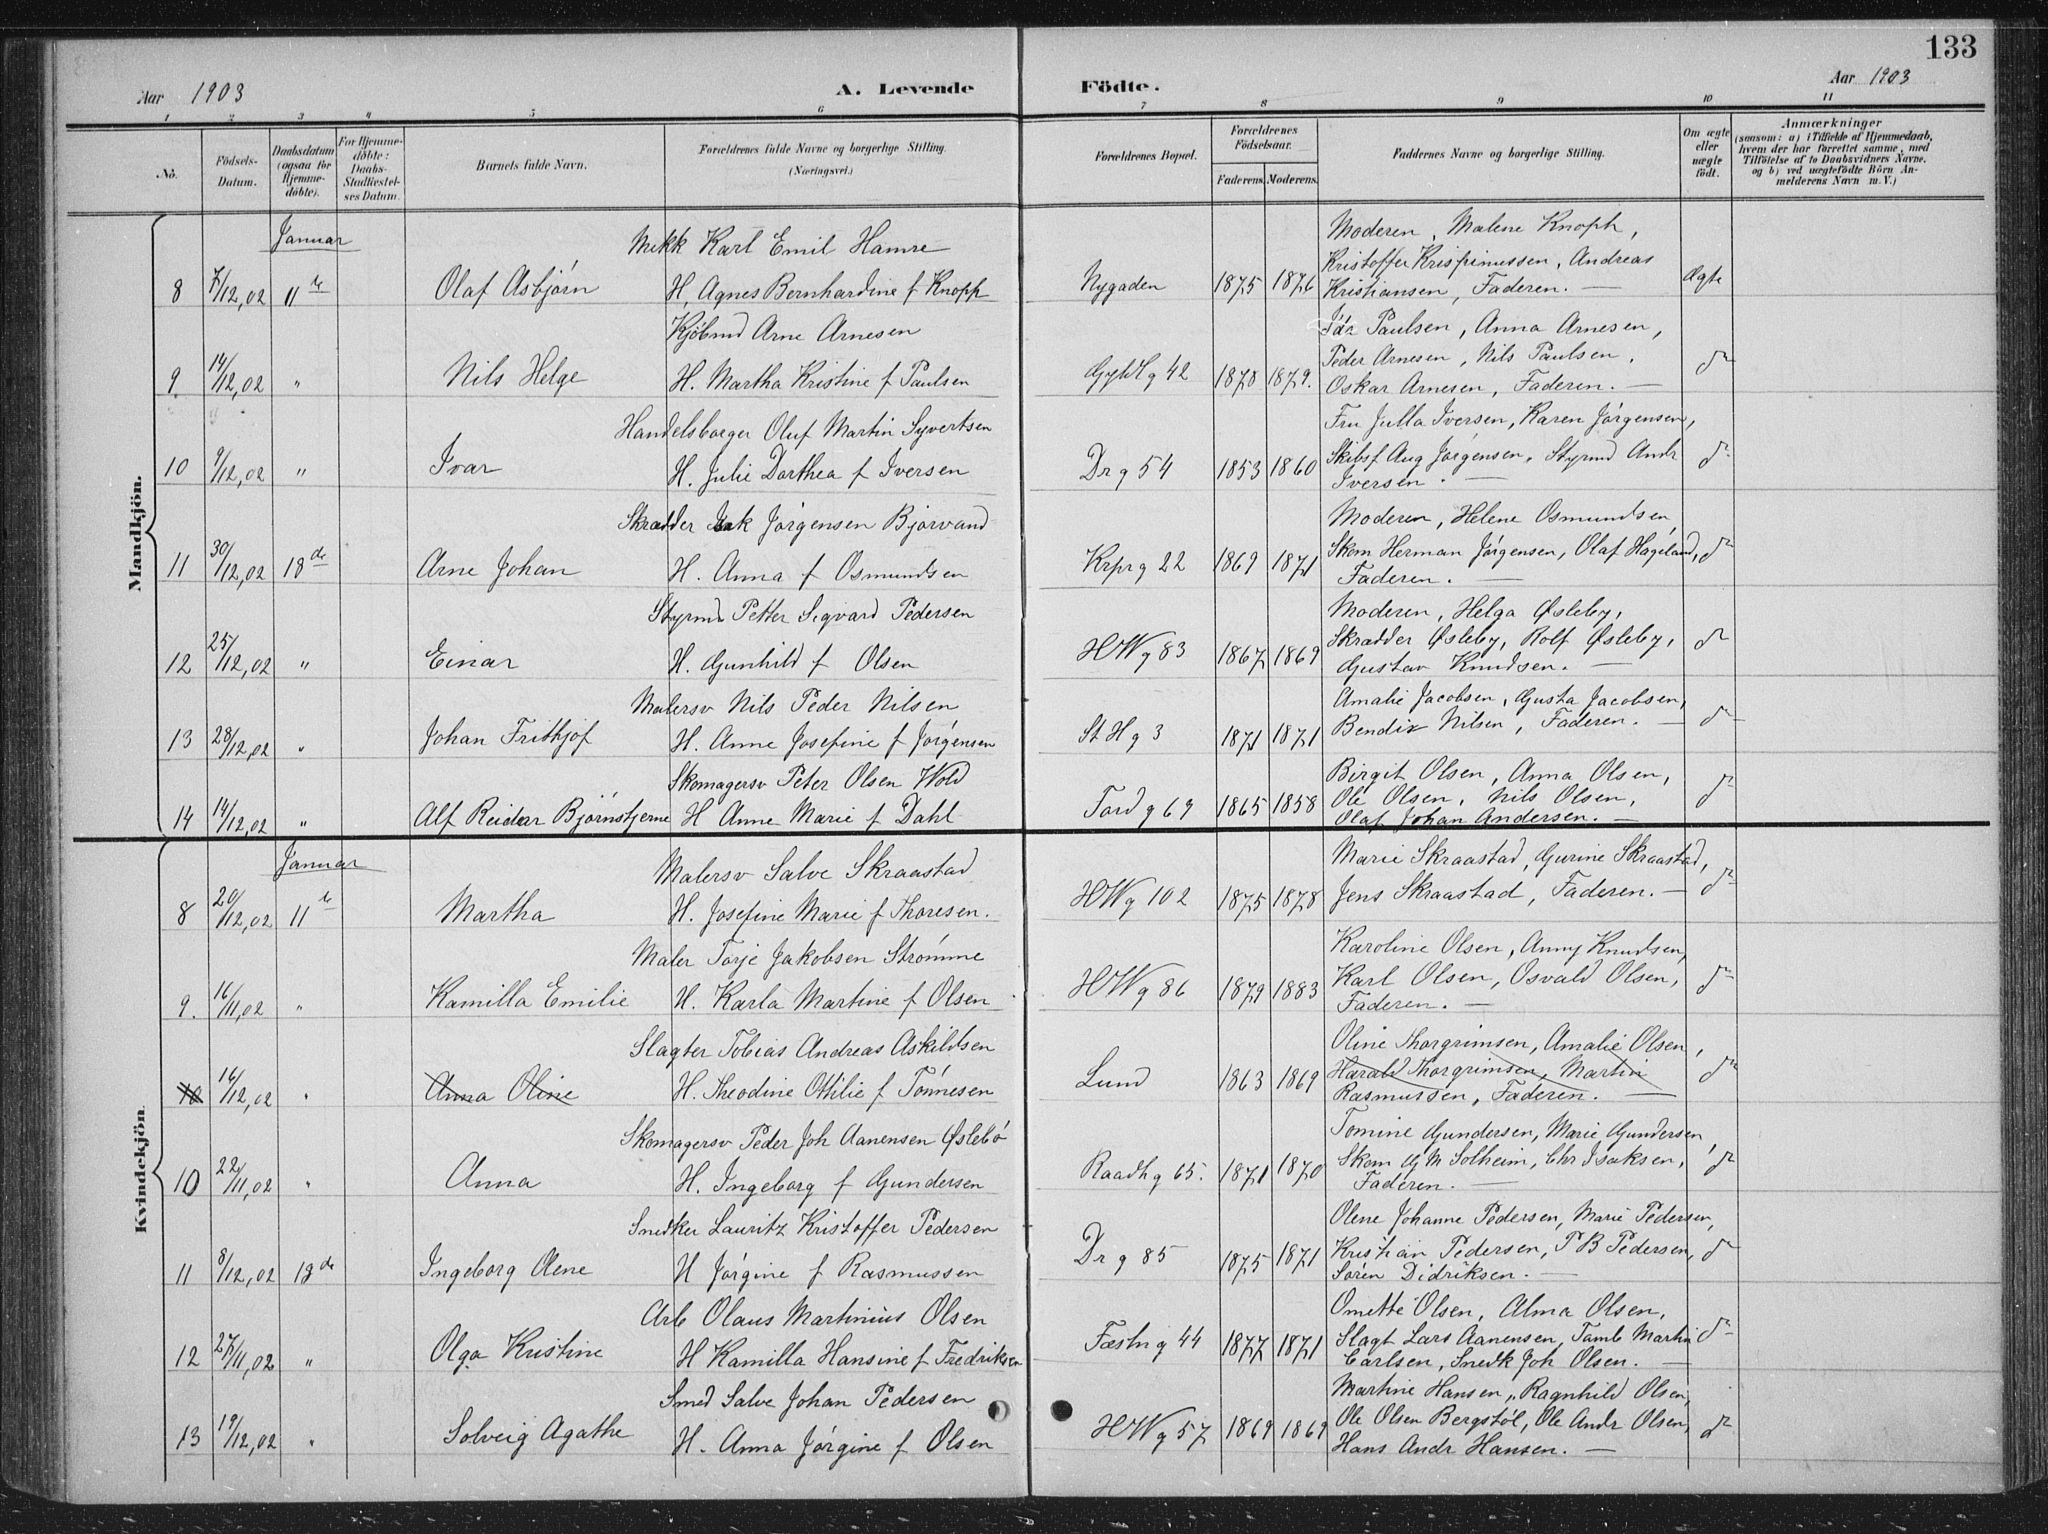 133
Aar 1903
A. Levende
Födte.
Aar 1903
1 2 3 4 5 6 7 8 9 10 11
No.
Födsels-Datum.
Daabsdatum (ogsaa for Hjemme-döbte).
For Hjemme-döbte: Daabs-Stadfæstel-ses Datum.
Barnets fulde Navn.
Forældrenes fulde Navne og borgerlige Stilling. (Næringsvei.)
Forældrenes Bopæl.
Forældrenes Födselsaar.
Faderens. Moderens.
Faddernes Navne og borgerlige Stilling.
Om ægte eller uægte födt.
Anmærkninger
(saasom: a) i Tilfælde af Hjemmedaab, hvem der har forrettet samme, med Tilföielse af to Daabsvidners Navne, og b) ved uægtefödte Börn An-melderens Navn m. V.)
Mandkjön.
Januar
Mekk Karl Emil Hamre
Moderen, Malene Knoph,
Kristoffer Krispinussen, Andreas
8 7/12,02 11te Olaf Asbjørn H. Agnes Bernhardine f Knoph Nygaden 1875 1876 Kristiansen, Faderen. — Ægte
Kjøbmd Arne Arnesen
Paulsen, Anna Arnesen,
Peder Arnesen, Nils Paulsen,
9 14/12,02 " Nils Helge H. Martha Kristine f Paulsen Gyldlg 42 1878 1879. Oskar Arnesen, Faderen. — do
Handelsborger Oluf Martin Syvertsen
Fru Julla Iversen, Karen Jørgensen,
10 9/12,02 " Ivar H. Julie Dorthea f Iversen Dr g 54 1853 1860 Skibsf Aug Jørgensen, Styrmd Andr do
Iversen. —
Skrædder Isak Jørgensen Bjorvand
Moderen, Helene Osmundsen,
11 30/12,02 18de Arne Johan H. Anna f Osmundsen Krpr g 22 1869 1871 Skom Herman Jørgensen, Olaf Hageland, do
Faderen. —
Styrmd Petter Sigvard Pedersen
Moderen, Helga Øsleby,
Skrædder Øsleby, Rolf Øsleby,
12 25/12,02 " Einar H. Gunhild f Olsen HWg 83 1867 1869 Gustav Knudsen. — do
Malersv Nils Peder Nilsen
Amalie Jacobsen, Gusta Jacobsen,
13 28/12,02 " Johan Frithjof H. Anne Josefine f Jørgensen St H g 3 1871 1871 Bendix Nilsen, Faderen. — do
Skomagersv Peter Olsen Wold
Birgit Olsen, Anna Olsen,
Ole Olsen, Nils Olsen,
14 14/12,02 " Alf Reidar Bjørnstjerne H Anne Marie f Dahl Tord g 69 1865 1858 Olaf Johan Andersen. — do
Kvindekjön.
Januar
Malersv Salve Skraastad
Marie Skraastad, Gurine Skraastad,
8 20/12,02 11te Martha H. Josefine Marie f Thoresen. HWg 102 1875 1878 Jens Skraastad, Faderen. — do
Maler Torje Jakobsen Strømme
Karoline Olsen, Anny Knudsen,
Karl Olsen, Osvald Olsen,
9. 16/11,02 " Kamilla Emilie H. Karla Martine f Olsen HWg 86 1879 1883 Faderen. — do
Slagter Tobias Andreas Askildsen
Oline Thorgrimsen, Amalie Olsen,
Harald Thorgrimsen, Martin
10 16/12,02 " Anna Oline H. Theodine Ottilie f Tønnesen Lund 1863 1869 Rasmussen, Faderen. — do
Skomagersv Peder Joh Aanensen Øslebø
Tomine Gundersen, Marie Gundersen,
Skom G M Solheim, Chr Isaksen,
10 22/11,02 " Anna H. Ingeborg f Gundersen Raadh g 65. 1871 1870 Faderen. — do
Snedker Lauritz Kristoffer Pedersen
Olene Johanne Pedersen, Marie Pedersen,
Kristian Pedersen, P B Pedersen,
11 8/12,02 18de Ingeborg Olene H Jørgine f Rasmussen Dr g 85 1875 1871 Søren Didriksen. — do
Arb Olaus Martinius Olsen
Omette Olsen, Alma Olsen,
Slagt Lars Aanensen, Tømb Martin
12 27/11,02 " Olga Kristine H Kamilla Hansine f Fredriksen Fæstn g 44 1877 1871 Carlsen, Snedk Joh Olsen. — do
Smed Salve Johan Pedersen
Martine Hansen, Ragnhild Olsen,
Ole Olsen Bergstøl, Ole Andr Olsen,
13 19/12,02 " Solveig Agathe H. Anna Jørgine f Olsen HWg 57 1869 1869 Hans Andr Hansen. — do